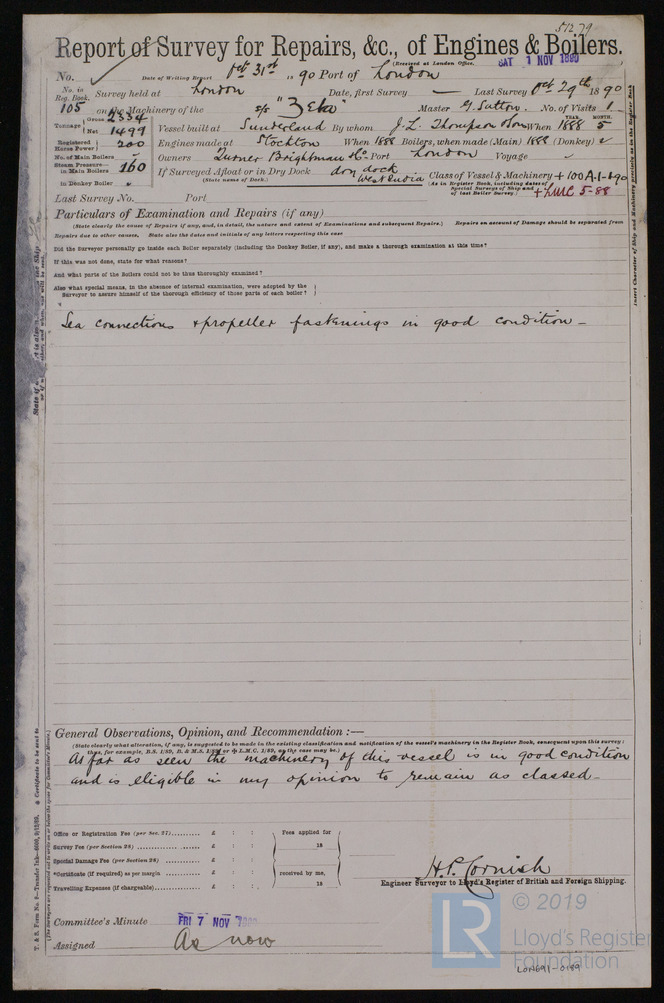 51279
Report of Survey for Repairs, &c., of Engines & Boilers.
(Received at London Office, SAT 1 NOV 1890
No. Date of Writing Report Oct 31st 1890 Port of London
No. in Reg. Book. Survey held at London Date, first Survey — Last Survey Oct 29th 1890
105 on the Machinery of the s/s "Zeta" Master G. Sutton. No. of Visits 1
Tonnage Gross 2334 Net 1499 Vessel built at Sunderland By whom J. L. Thompson & Sons When YEAR. 1888 MONTH. 5
Registered Horse Power 200 Engines made at Stockton When 1888 Boilers, when made (Main) 1888 (Donkey)
No. of Main Boilers Owners Turner Brightman & Co. Port London Voyage
Steam Pressure— in Main Boilers 160 If Surveyed Afloat or in Dry Dock dry dock West India Class of Vessel & Machinery + 100 A.1-1-90
in Donkey Boiler (State name of Dock.) (As in Register Book, including dates of Special Surveys of Ship and of last Boiler Survey.) + LMC 5-88
Last Survey No. Port
Particulars of Examination and Repairs (if any)
(State clearly the cause of Repairs if any, and, in detail, the nature and extent of Examinations and subsequent Repairs.) Repairs on account of Damage should be separated from
Repairs due to other causes. State also the dates and initials of any letters respecting this case
Did the Surveyor personally go inside each Boiler separately (including the Donkey Boiler, if any), and make a thorough examination at this time?
If this was not done, state for what reasons?
And what parts of the Boilers could not be thus thoroughly examined?
Also what special means, in the absence of internal examination, were adopted by the
Surveyor to assure himself of the thorough efficiency of those parts of each boiler?
Sea connections & propeller fastenings in good condition—
General Observations, Opinion, and Recommendation:—
(State clearly what alteration, if any, is suggested to be made in the existing classification and notification of the vessel's machinery in the Register Book, consequent upon this survey:
thus, for example, B.S. 1/89, B. & M.S. 1/89 or + L.M.C. 1/89, as the case may be.)
As far as seen the machinery of this vessel is in good condition
and is eligible in my opinion to remain as classed—
Office or Registration Fee (per Sec. 27) £ : : Fees applied for
Survey Fee (per Section 28) £ : : 18
Special Damage Fee (per Section 28) £ : :
*Certificate (if required) as per margin £ : : received by me,
Travelling Expenses (if chargeable) £ : : 18
H. P. Cornish
Engineer Surveyor to Lloyd's Register of British and Foreign Shipping.
Committee's Minute FRI 7 NOV 1890
Assigned As now
© 2019
LR Lloyd's Register
Foundation
LON691-0189